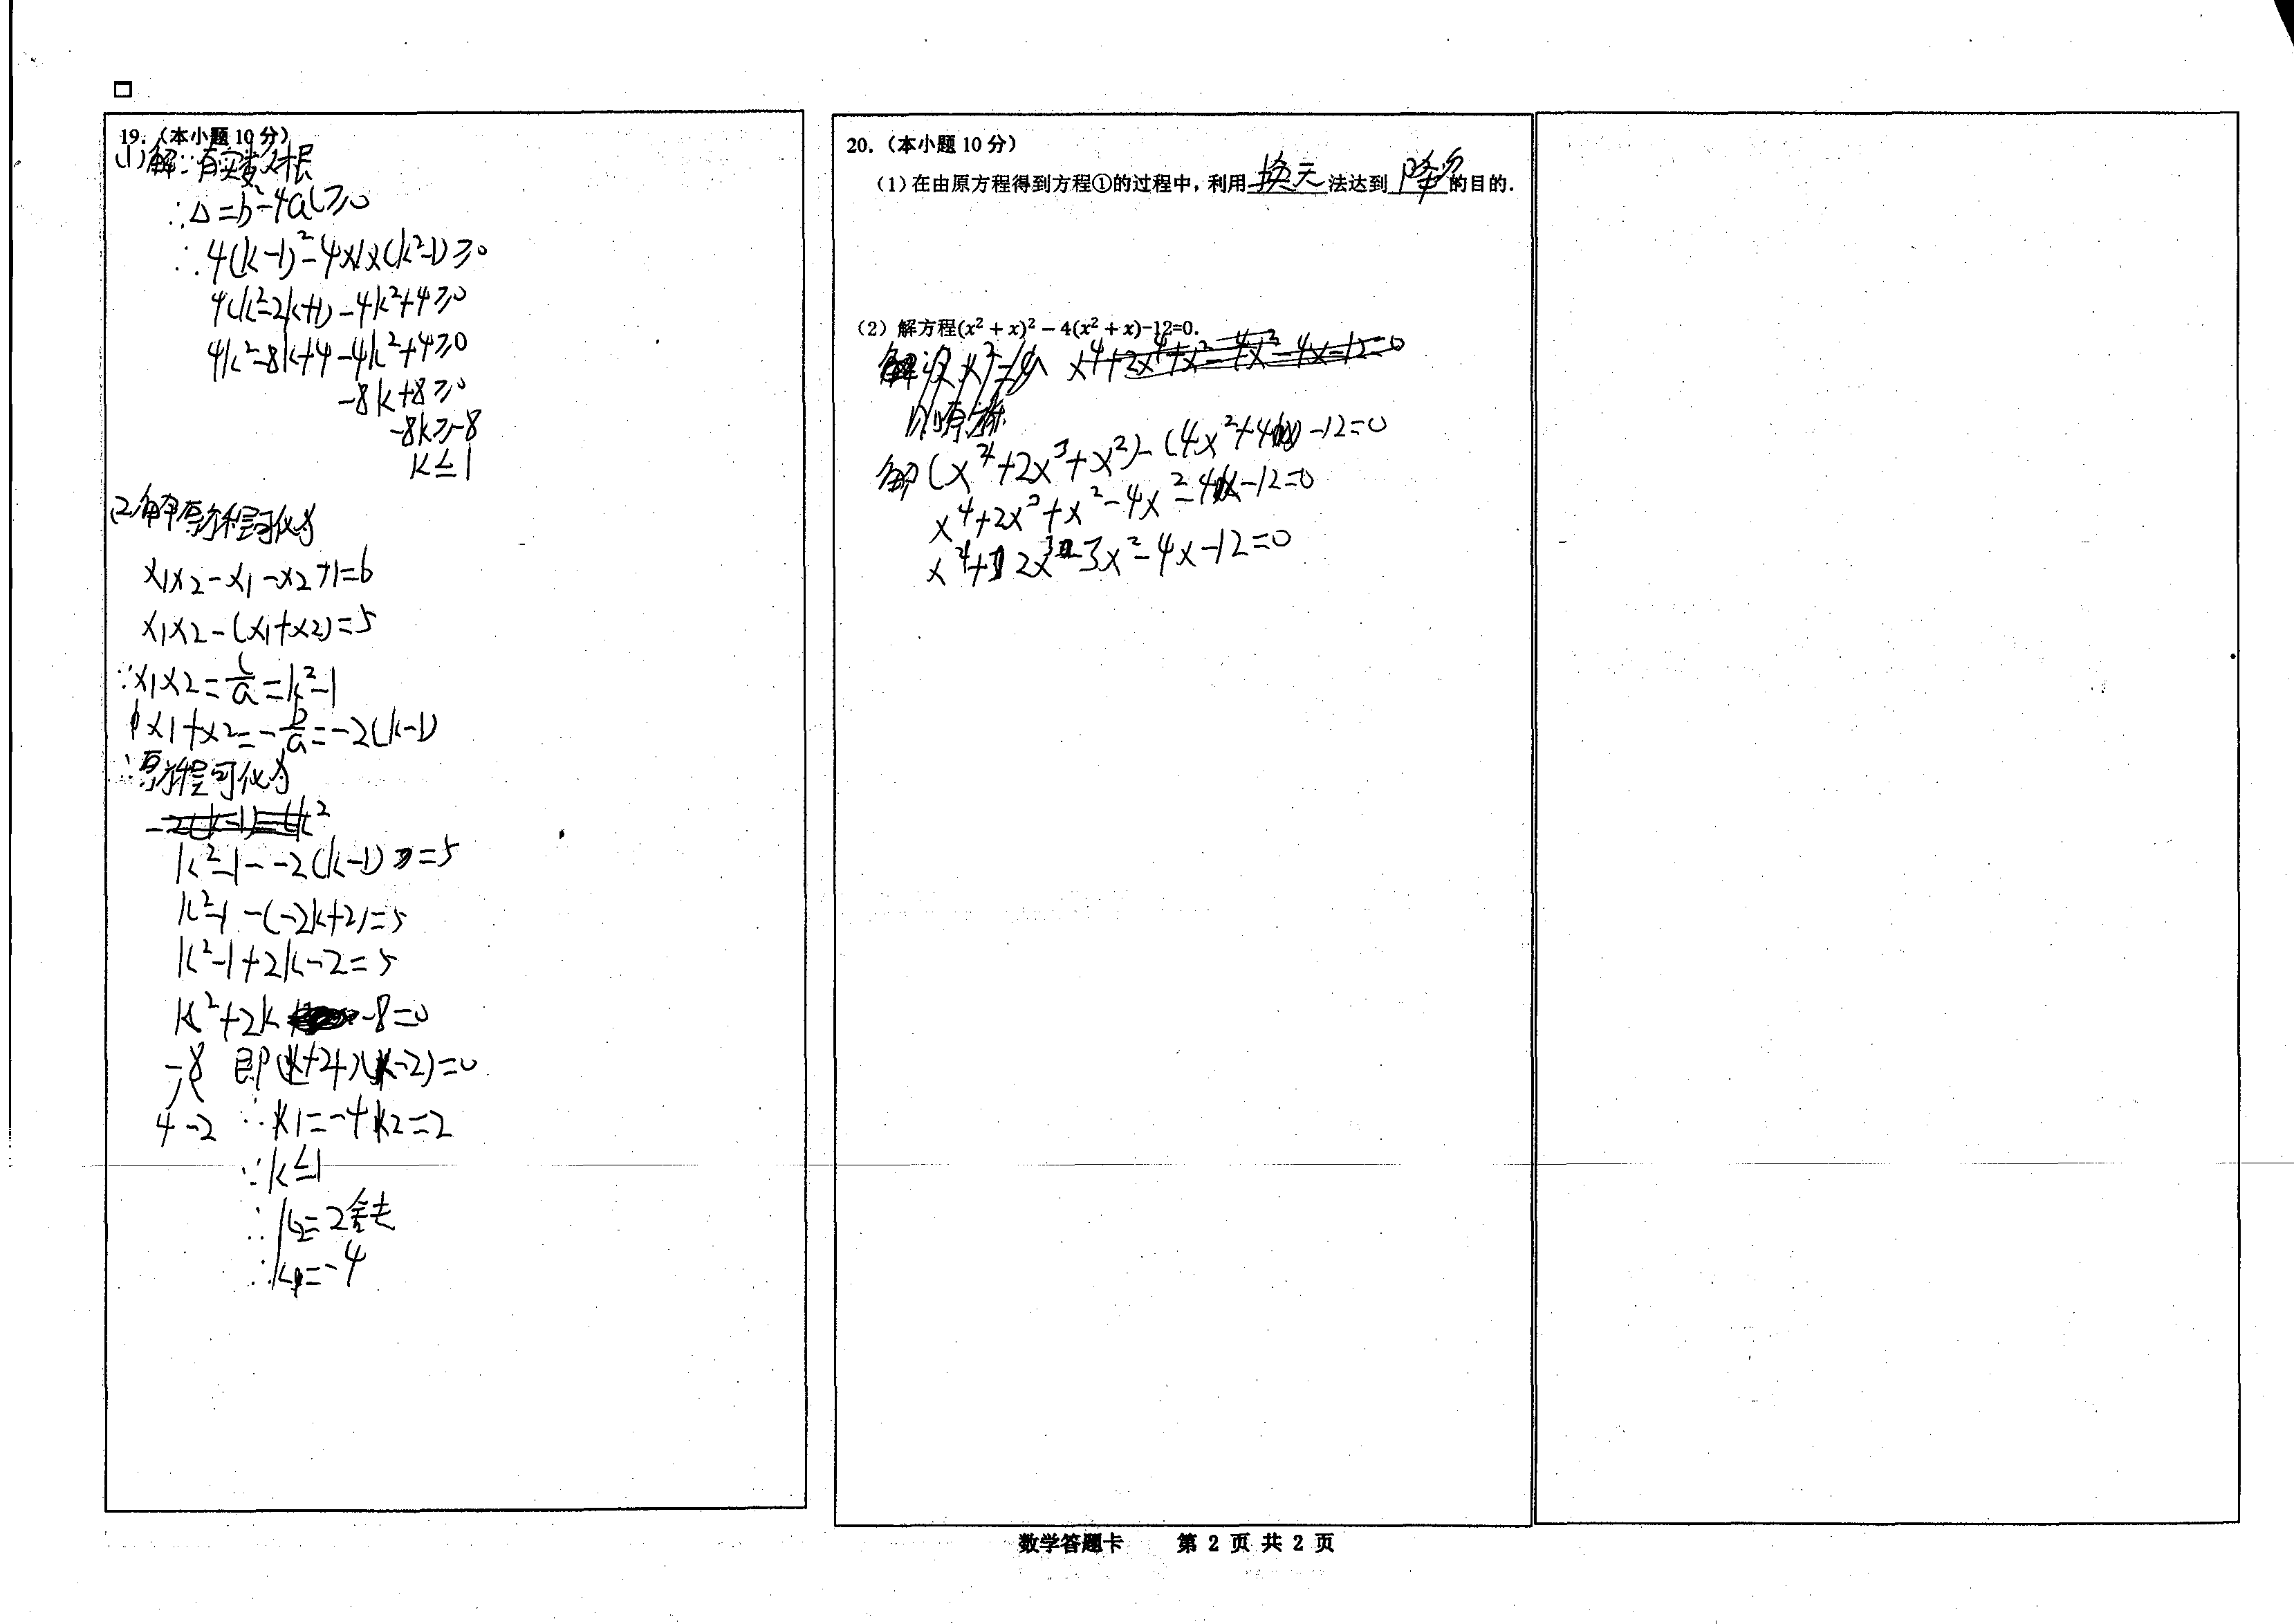 19.（本小题 10 分）
(1)解∵有实数根
∴Δ=b²-4ac≥0
∴4(k-1)²-4×1×(k²-1)≥0
4(k²-2k+1)-4k²+4≥0
4k²-8k+4-4k²+4≥0
-8k+8≥0
-8k≥-8
k≤1
(2解原方程可化为
x₁x₂-x₁-x₂+1=6
x₁x₂-(x₁+x₂)=5
∵x₁x₂=c/a=k²-1
x₁+x₂=-b/a=-2(k-1)
∴原方程可化为
k²-1--2(k-1)=5
k²-1-(-2k+2)=5
k²-1+2k-2=5
k²+2k-8=0
-8 即(k+4)(k-2)=0
4 -2 ∴k₁=-4 k₂=2
∵k≤1
∴k₂=2舍去
∴k₁=-4
20.（本小题 10 分）
（1）在由原方程得到方程①的过程中，利用换元法达到降次的目的.
（2）解方程(x² + x)² − 4(x² + x)-12=0.
解设x²=y x⁴+2x⁴+x²-4x²-4x-12=0
则原方标
解(x⁴+2x³+x²)-(4x²+4x)-12=0
x⁴+2x³+x²-4x²-4x-12=0
x⁴+2x³-3x²-4x-12=0
数学答题卡 第 2 页 共 2 页